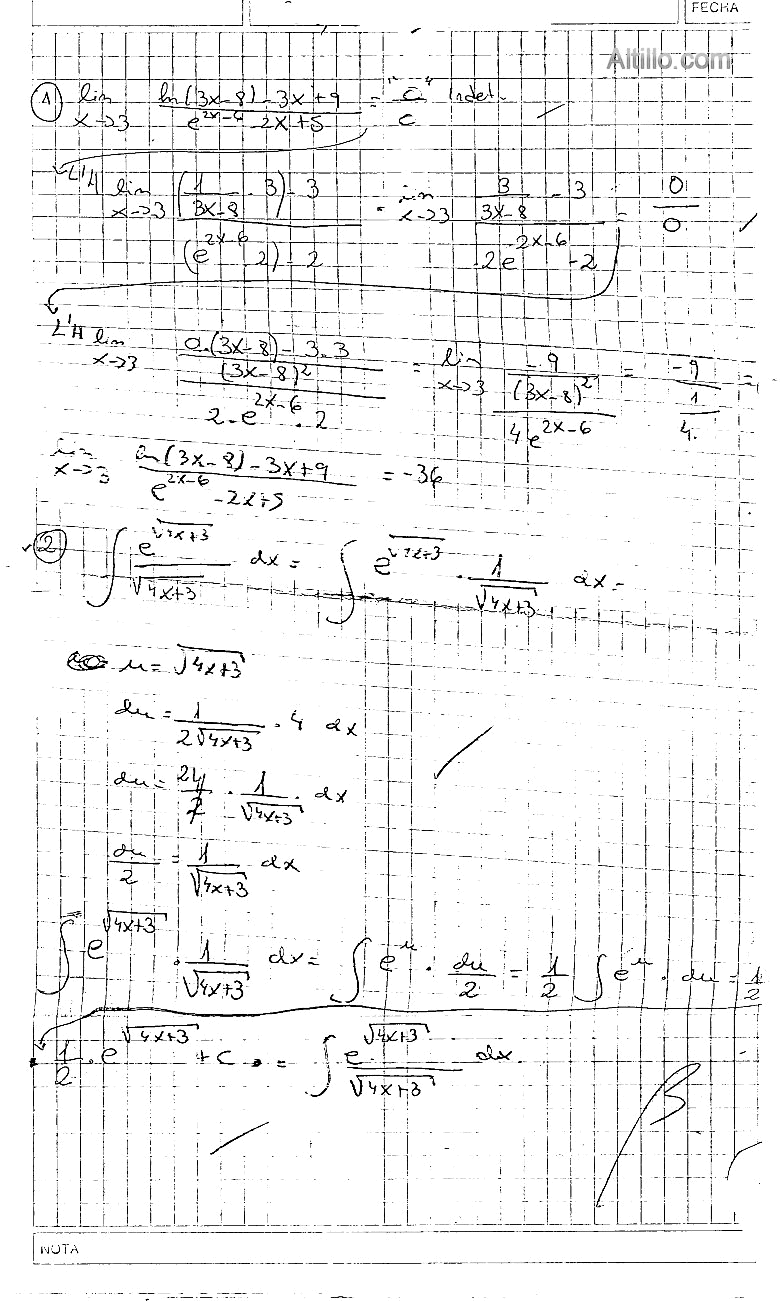 FECHA
Altillo.com
1) lim x→3 (ln(3x-8)-3x+9)/(e^(2x-6)-2x+5) = "0/0" Indet.
L'H lim x→3 ((1/(3x-8) · 3) - 3)/((e^(2x-6) · 2) - 2) = lim x→3 (3/(3x-8) - 3)/(2e^(2x-6) - 2) = 0/0
L'H lim x→3 ((0.(3x-8) - 3.3)/(3x-8)²)/(2.e^(2x-6) . 2) = lim x→3 (-9/(3x-8)²)/(4e^(2x-6)) = (-9/1)/4. =
lim x→3 (ln(3x-8)-3x+9)/(e^(2x-6)-2x+5) = -36
2) ∫ e^√(4x+3)/√(4x+3) dx = ∫ e^√(4x+3) · 1/√(4x+3) dx =
u = √(4x+3)
du = 1/(2√(4x+3)) · 4 dx
du = 4/2 · 1/√(4x+3) · dx
du/2 = 1/√(4x+3) dx
∫ e^√(4x+3) · 1/√(4x+3) dx = ∫ e^u · du/2 = 1/2 ∫ e^u · du = 1/2
· 1/2 · e^√(4x+3) + c = ∫ e^√(4x+3)/√(4x+3) dx.
B
NOTA